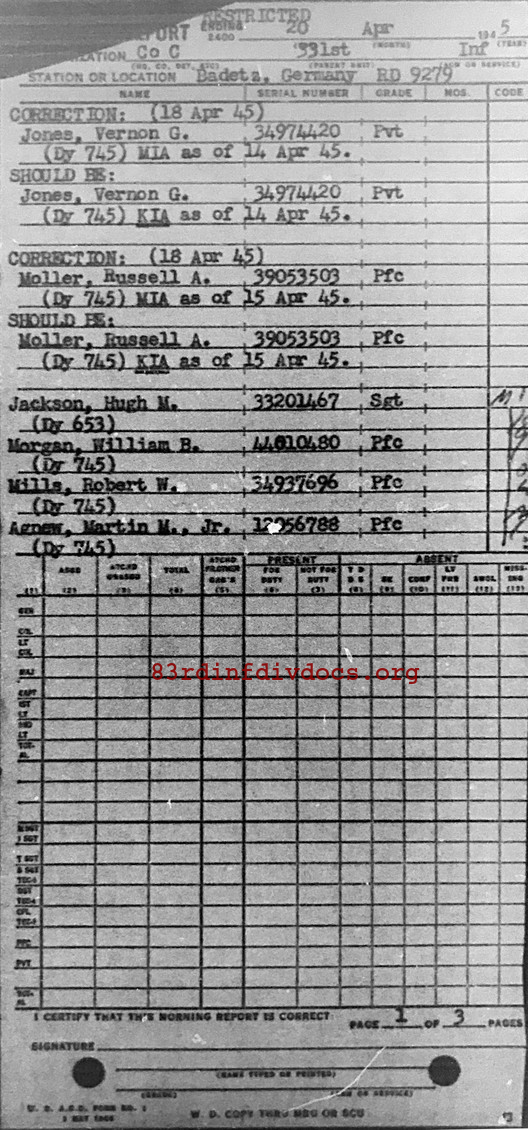 RESTRICTED
PORT ENDING 2400 20 Apr 194 5
(MONTH) (YEAR)
IZATION Co C 331st Inf
(NO. CO. DET. ETC) (PARENT UNIT) (ARM OR SERVICE)
STATION OR LOCATION Badetz, Germany RD 9279
NAME SERIAL NUMBER GRADE MOS. CODE
CORRECTION: (18 Apr 45)
Jones, Vernon G. 34974420 Pvt
(Dy 745) MIA as of 14 Apr 45.
SHOULD BE:
Jones, Vernon G. 34974420 Pvt
(Dy 745) KIA as of 14 Apr 45.
CORRECTION: (18 Apr 45)
Moller, Russell A. 39053503 Pfc
(Dy 745) MIA as of 15 Apr 45.
SHOULD BE:
Moller, Russell A. 39053503 Pfc
(Dy 745) KIA as of 15 Apr 45.
Jackson, Hugh M. 33201467 Sgt
(Dy 653)
Morgan, William B. 44010480 Pfc
(Dy 745)
Mills, Robert W. 34937696 Pfc
(Dy 745)
Agnew, Martin M., Jr. 12056788 Pfc
(Dy 745)
PRESENT ABSENT
ASGD ATCHD UNASGD TOTAL ATCHD FR OTHER ORG'S FOR DUTY NOT FOR DUTY T D D S SK CONF LT PWB AWOL MISS-ING
(1) (2) (3) (4) (5) (6) (7) (8) (9) (10) (11) (12) (13)
GEN
COL
LT COL
MAJ
83rdinfdivdocs.org
CAPT
1ST LT
2ND LT
TOT-AL
M SGT
1 SGT
T SGT
S SGT
TEC-3
SGT
TEC-4
CPL
TEC-5
PFC
PVT
TOT-AL
I CERTIFY THAT THIS MORNING REPORT IS CORRECT:
PAGE 1 OF 3 PAGES
SIGNATURE
(NAME TYPED OR PRINTED)
(GRADE) (ARM OR SERVICE)
W. D. A.G.O. FORM NO. 1
W. D. COPY THRU MRU OR SCU